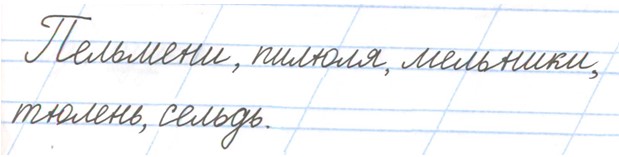 Пельмени, пилюля, мельники,
тюлень, сельдь.